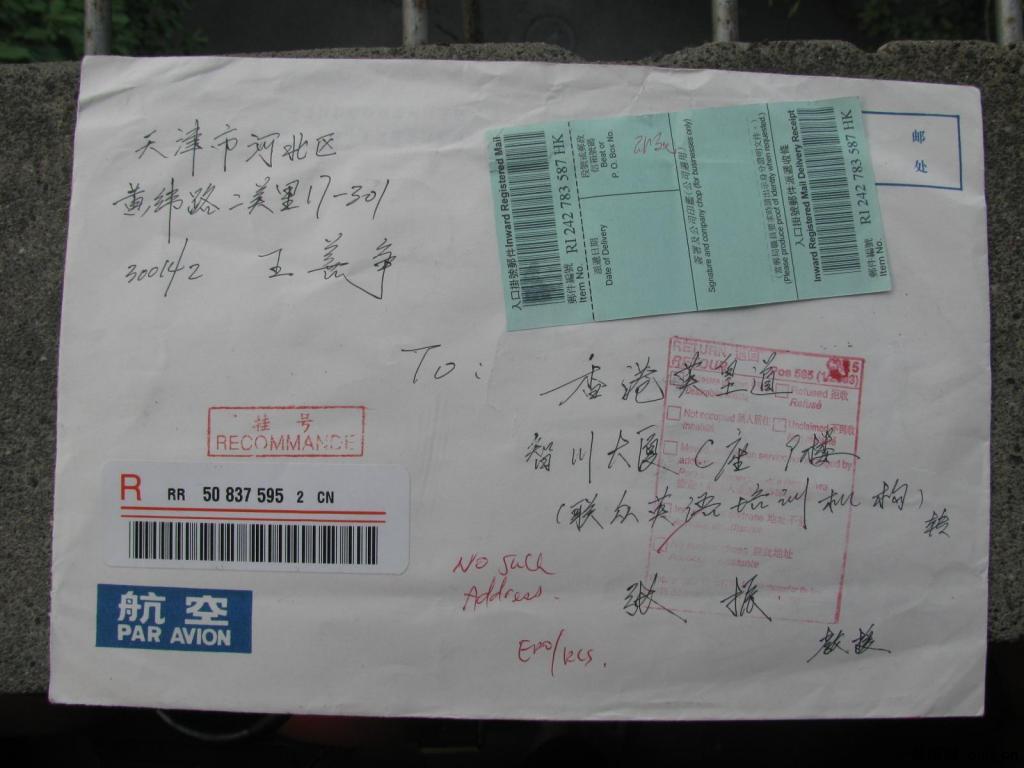 天津市河北区
黄纬路二美里17-301
300142
入口掛號郵件Inward Registered Mail
RI 242 783 587 HK
郵件編號
Item No.
段號或郵政信箱號碼
Beat or
P. O. Box No.
派遞日期
Date of Delivery
簽署及公司印鑑(公司適用)
Signature and company chop (for businesses only)
(Please produce proof of identity when requested.)
入口掛號郵件派遞收條
Inward Registered Mail Delivery Receipt
RI 242 783 587 HK
郵件編號
Item No.
邮
处
To:
香港英皇道
智川大厦C座9楼
(联众英语培训机构)转
张振
教授
RETURN 退回
RETOUR
Refused 拒收
Refusé
Not occupied
Unclaimed
挂号
RECOMMANDE
R RR 50 837 595 2 CN
航空
PAR AVION
No Such
Address.